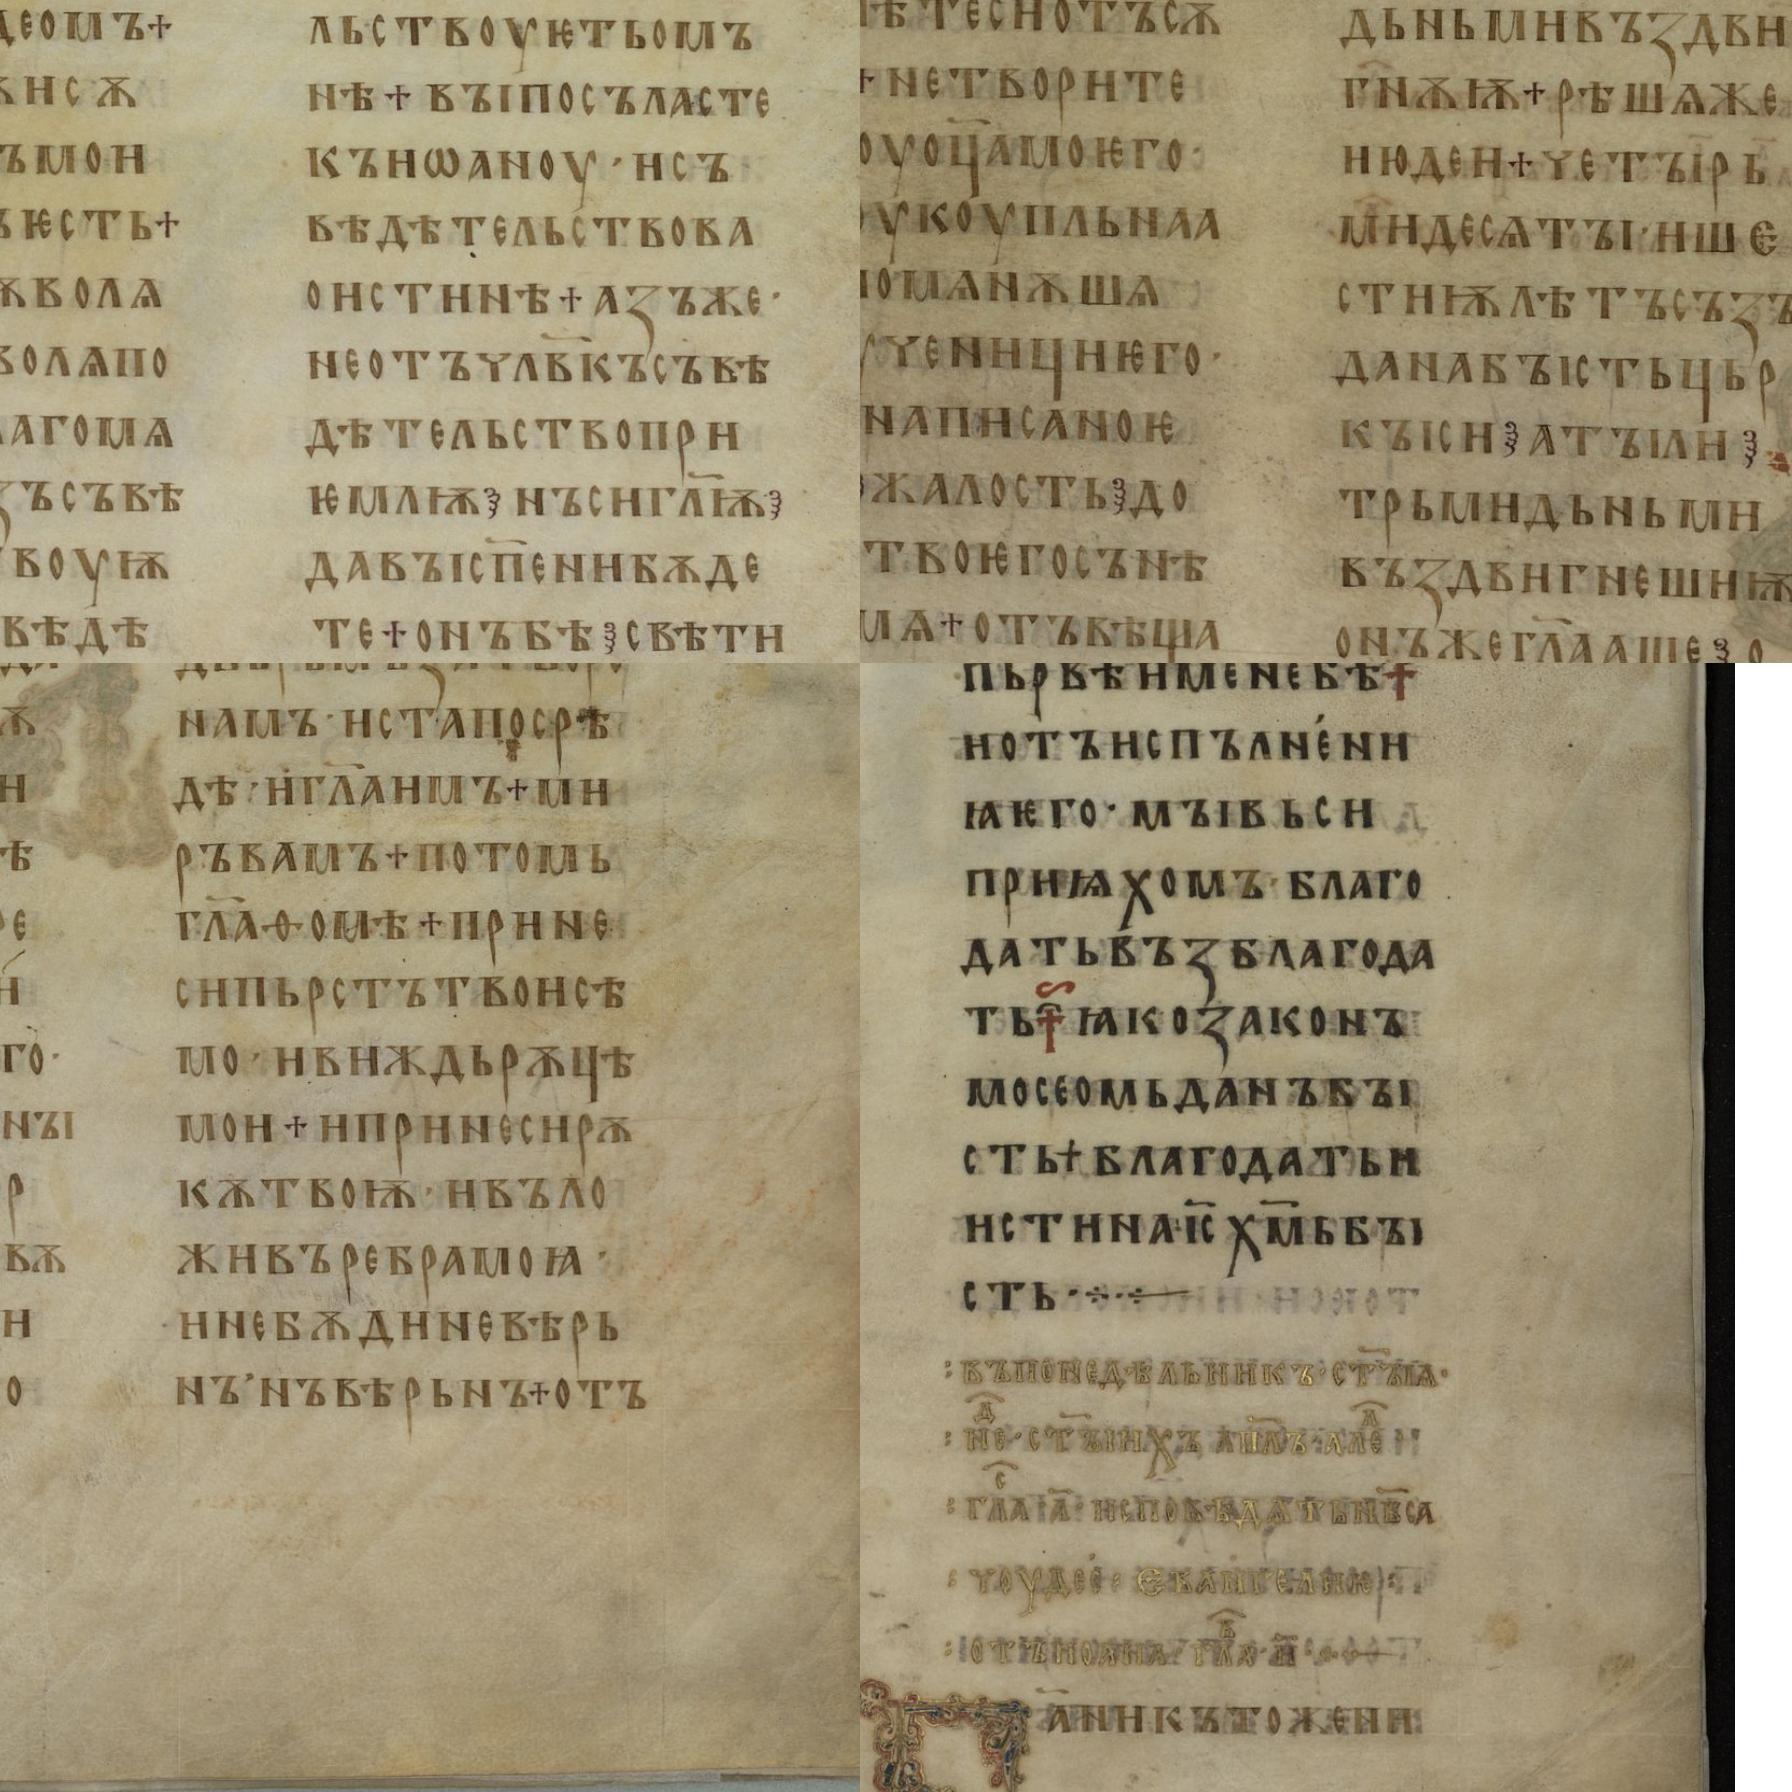 деомъ+
исѫ
ъмои
ѥсть+
ѫволѧ
волѧпо
лагомѧ
ꙁъсъвѣ
воуѭ
вѣдѣ
льствоуѥтьомъ
нѣ+въıпосъласте
къиѡаноу·исъ
вѣдѣтельствова
оистинѣ+аꙁъже·
неотъчл҃вкъсъвѣ
дѣтельствопри
ѥмлѭ·нъсигл҃ѭ·
давъісп҃ениибѫде
те+онъбѣ·свѣти
ѣтеснотъсѫ
+нетворите
оуоц҃амоѥго·
оукоупльнаа
помѧнѫшѧ
ученициѥго·
написаноѥ
жалость·до
твоѥгосънѣ
мѧ+отъвѣща
дьньмивъꙁдви
гнѫѭ+рѣшѧже
июдеи+четъıрь
мидесѧтъı·ише
стиѭлѣтъсъꙁъ
данабъıстьцьр
къıси·атъıли·
трьмидьньми
въꙁдвигнешиѭ
онъжегл҃ааше·о
намъ·истапосрѣ
дѣ·игл҃аимъ+ми
ръвамъ+потомь
гл҃аѳомѣ+прине
сипьрстътвоисѣ
мо·ивиждьрѫцѣ
мои+ипринесирѫ
кѫтвоѭ·ивъло
живъребрамоꙗ·
инебѫдиневѣрь
нъ·нъвѣрьнъ+отъ
пьрвѣименебѣ+
иотъисплънени
ꙗѥго·мъıвьси
приꙗхомъ·благо
датьвъꙁблагода
ть+ꙗкоꙁаконъ
мосеомьданъбъı
сть+благодатьи
истинаіс҃хм҃ьбъı
сть·
:въпонедѣльникъ·ст҃ъıѧ·
:не·ст҃ъıихъап҃лъ·але
:гл҃аа҃·исповѣдѧтьнб҃са
:чоудес·еванѓелиѥ·
:отъиоана·гл҃а·и҃·
аникътожени